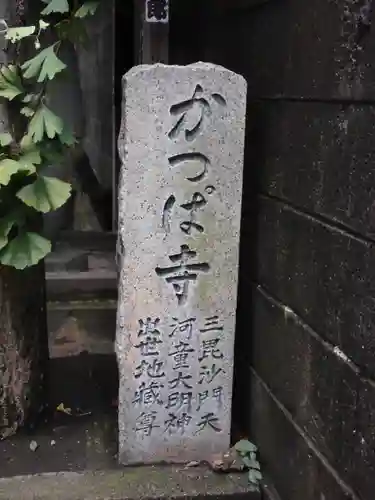 かっぱ寺
三毘沙門天
河童大明神
出世地蔵尊